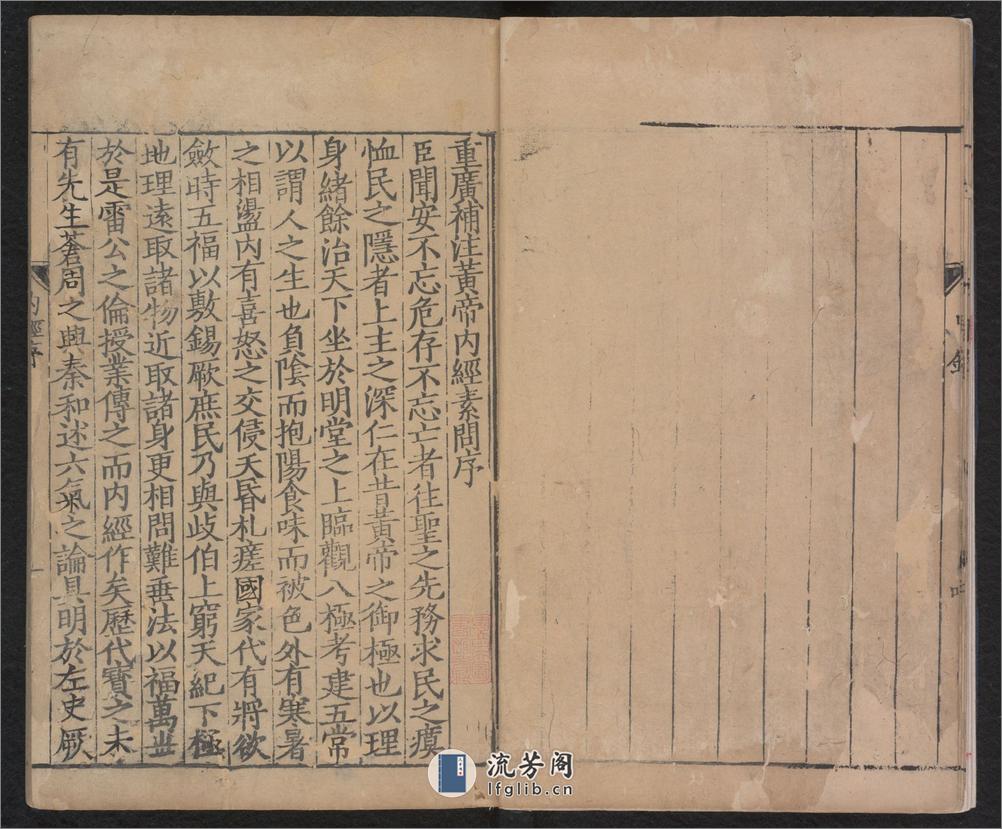 重廣補注黃帝内經素問序
臣聞安不忘危存不忘亡者往聖之先務求民之瘼
恤民之隱者上主之深仁在昔黃帝之御極也以理
身緒餘治天下坐於明堂之上臨觀八極考建五常
以謂人之生也負陰而抱陽食味而被色外有寒暑
之相盪内有喜怒之交侵夭昏札瘥國家代有將欲
斂時五福以敷錫厥庶民乃與歧伯上窮天紀下極
地理遠取諸物近取諸身更相問難垂法以福萬世
於是雷公之倫授業傳之而内經作矣歷代寶之未
有失生蒼周之興秦和述六氣之論具明於左史厥
内經序
流芳阁
lfglib.cn